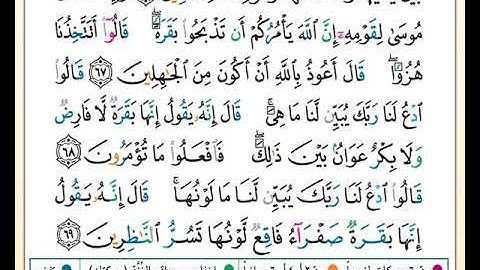 مُوسَىٰ لِقَوْمِهِۦٓ إِنَّ ٱللَّهَ يَأْمُرُكُمْ أَن تَذْبَحُوا۟ بَقَرَةً ۖ قَالُوٓا۟ أَتَتَّخِذُنَا
هُزُوًا ۖ قَالَ أَعُوذُ بِٱللَّهِ أَنْ أَكُونَ مِنَ ٱلْجَـٰهِلِينَ ٦٧ قَالُوا۟
ٱدْعُ لَنَا رَبَّكَ يُبَيِّن لَّنَا مَا هِىَ ۚ قَالَ إِنَّهُۥ يَقُولُ إِنَّهَا بَقَرَةٌ لَّا فَارِضٌ
وَلَا بِكْرٌ عَوَانٌۢ بَيْنَ ذَٰلِكَ ۖ فَٱفْعَلُوا۟ مَا تُؤْمَرُونَ ٦٨
قَالُوا۟ ٱدْعُ لَنَا رَبَّكَ يُبَيِّن لَّنَا مَا لَوْنُهَا ۚ قَالَ إِنَّهُۥ يَقُولُ
إِنَّهَا بَقَرَةٌ صَفْرَآءُ فَاقِعٌ لَّوْنُهَا تَسُرُّ ٱلنَّـٰظِرِينَ ٦٩